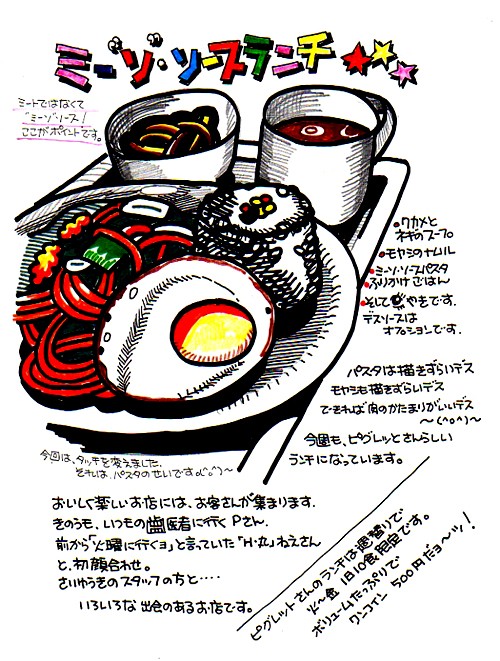 ミーゾ・ソースランチ
ミートではなくて
"ミーゾソース!
ここがポイントです。
●ワカメと
ネギのスープ
●モヤシのナムル
●ミーソ・ソースパスタ
●ふりかけごはん
●そして 焼きです。
デスソースは
オプションです。
パスタは描きずらいデス
モヤシも描きずらいデス
できれば肉のかたまりがいいデス
〜(^o^)〜
今週も、ピグレットさんらしい
ランチになっています。
今回は、タッチを変えました。
それは、パスタのせいですo(^o^)〜
おいしく楽しいお店には、お客さんが集まります。
きのうも、いつもの歯医者に行くPさん。
前から「火曜に行くヨ」と言っていた「H・丸」ねえさん
と、初顔合わせ。
さいゆうきのスタッフの方と‥‥
いろいろな出会のあるお店です。
ピグレットさんのランチは週替りで
火〜金 1日10食限定です。
ボリュームたっぷりで
ワンコイン 500円だヨ〜ッ!